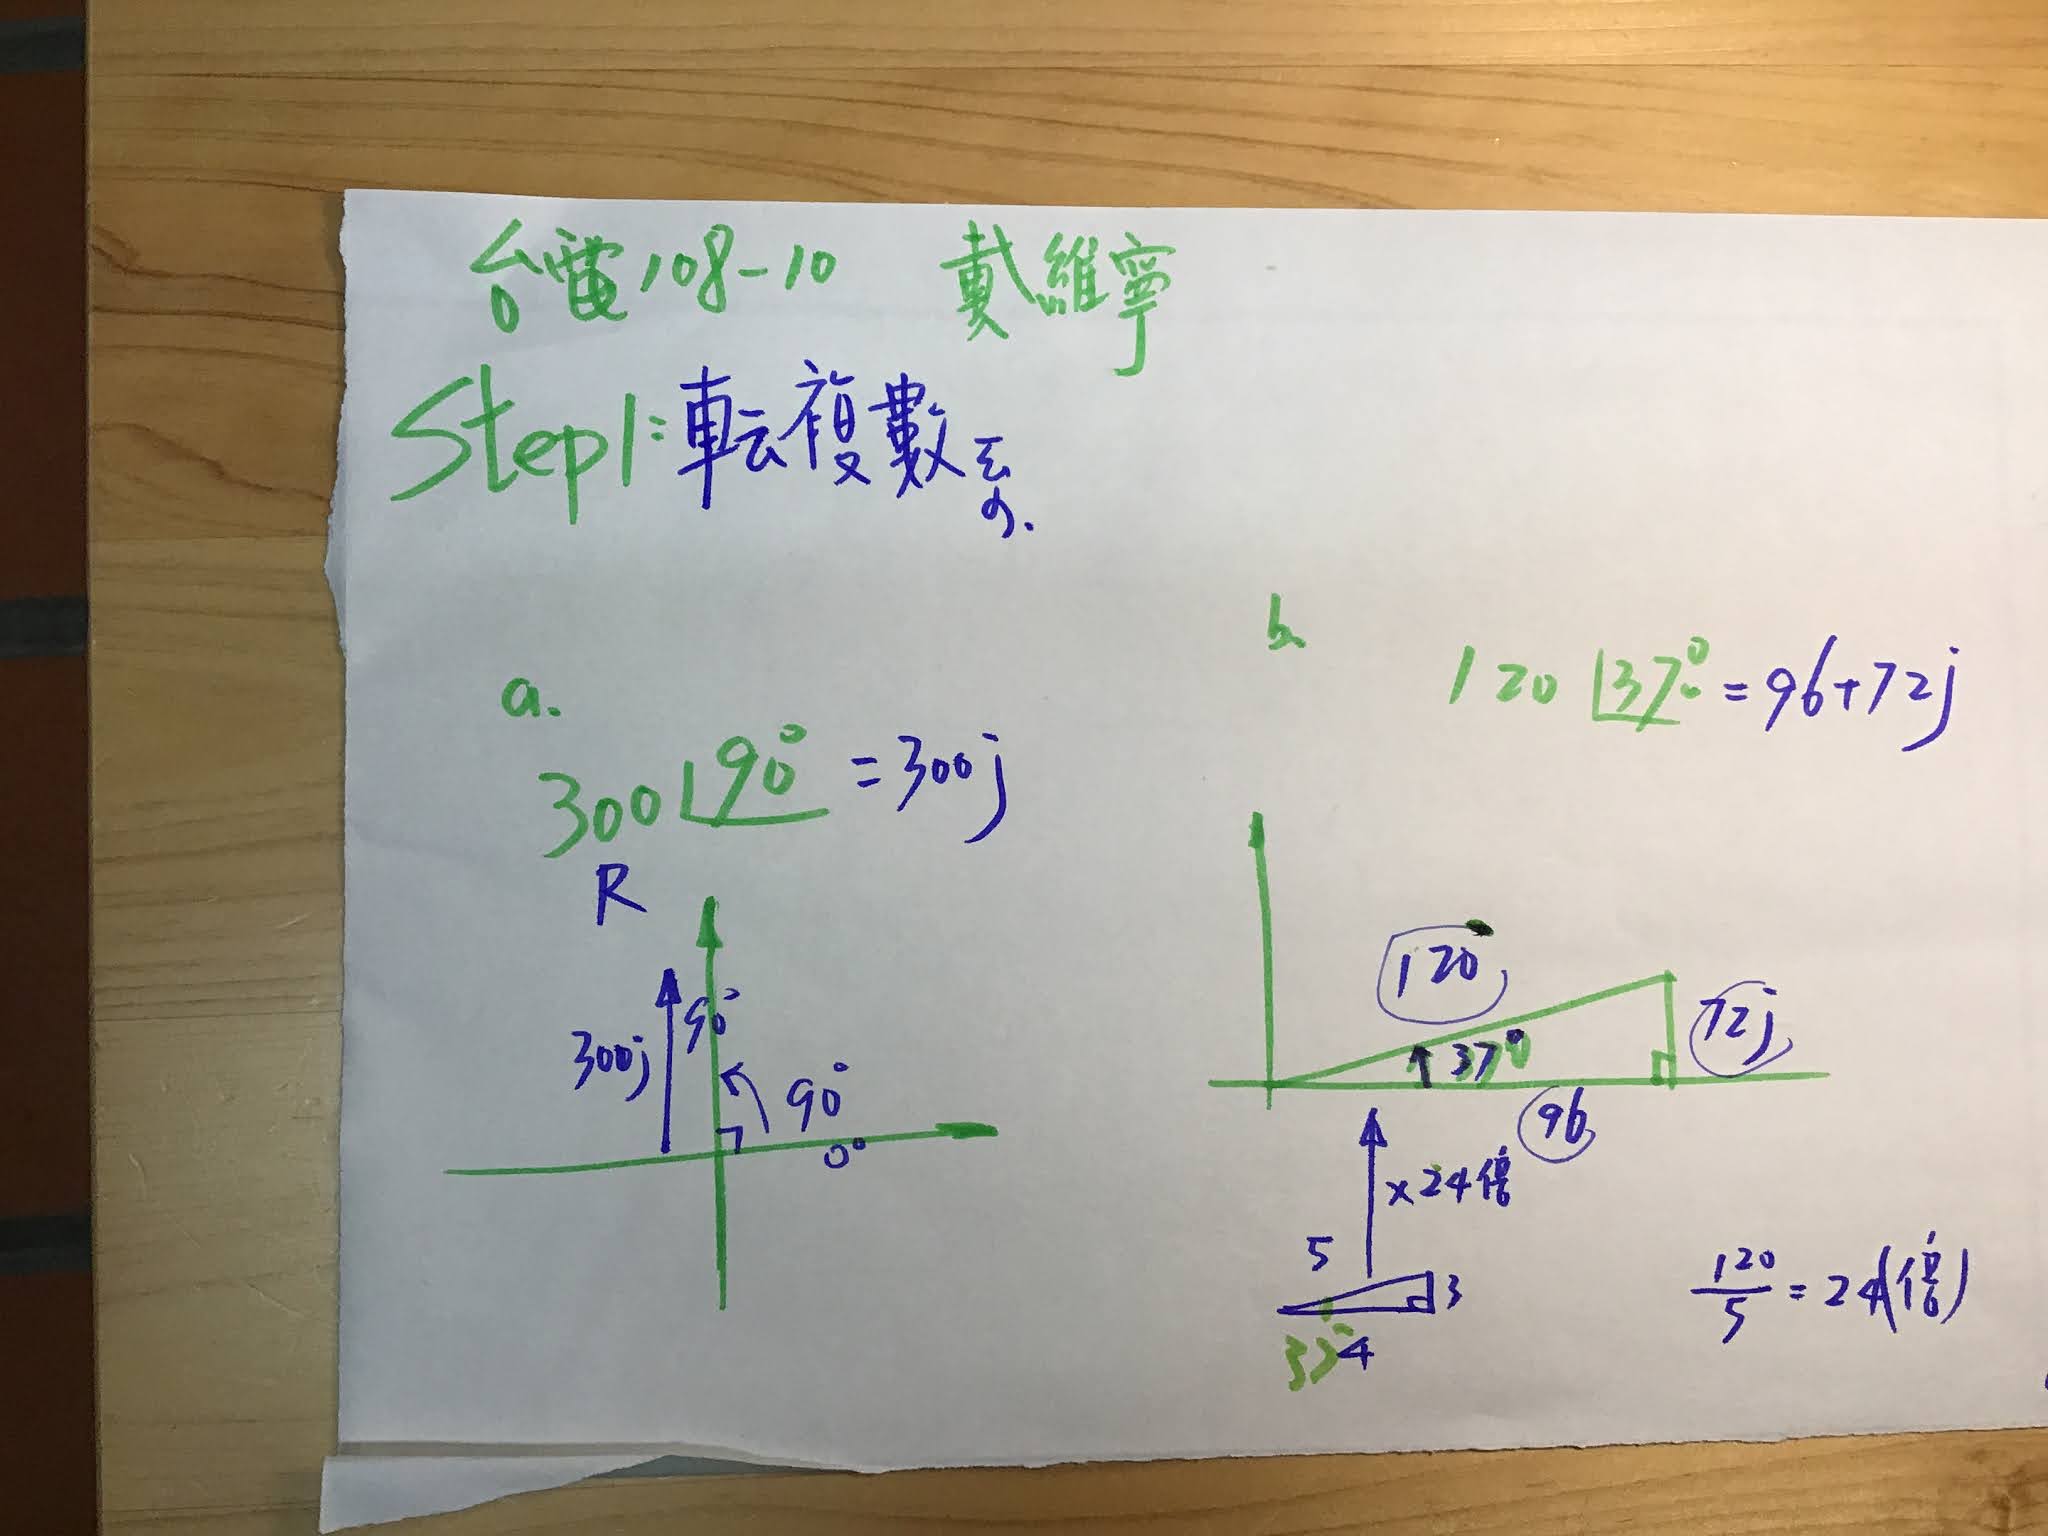 台電108-10 戴維寧
Step1:転複數
a.
300∠90° = 300j
R
300j
90°
90°
0°
b.
120∠37° = 96+72j
120
37°
72j
96
×24倍
5
3
37°
4
120/5 = 24(倍)